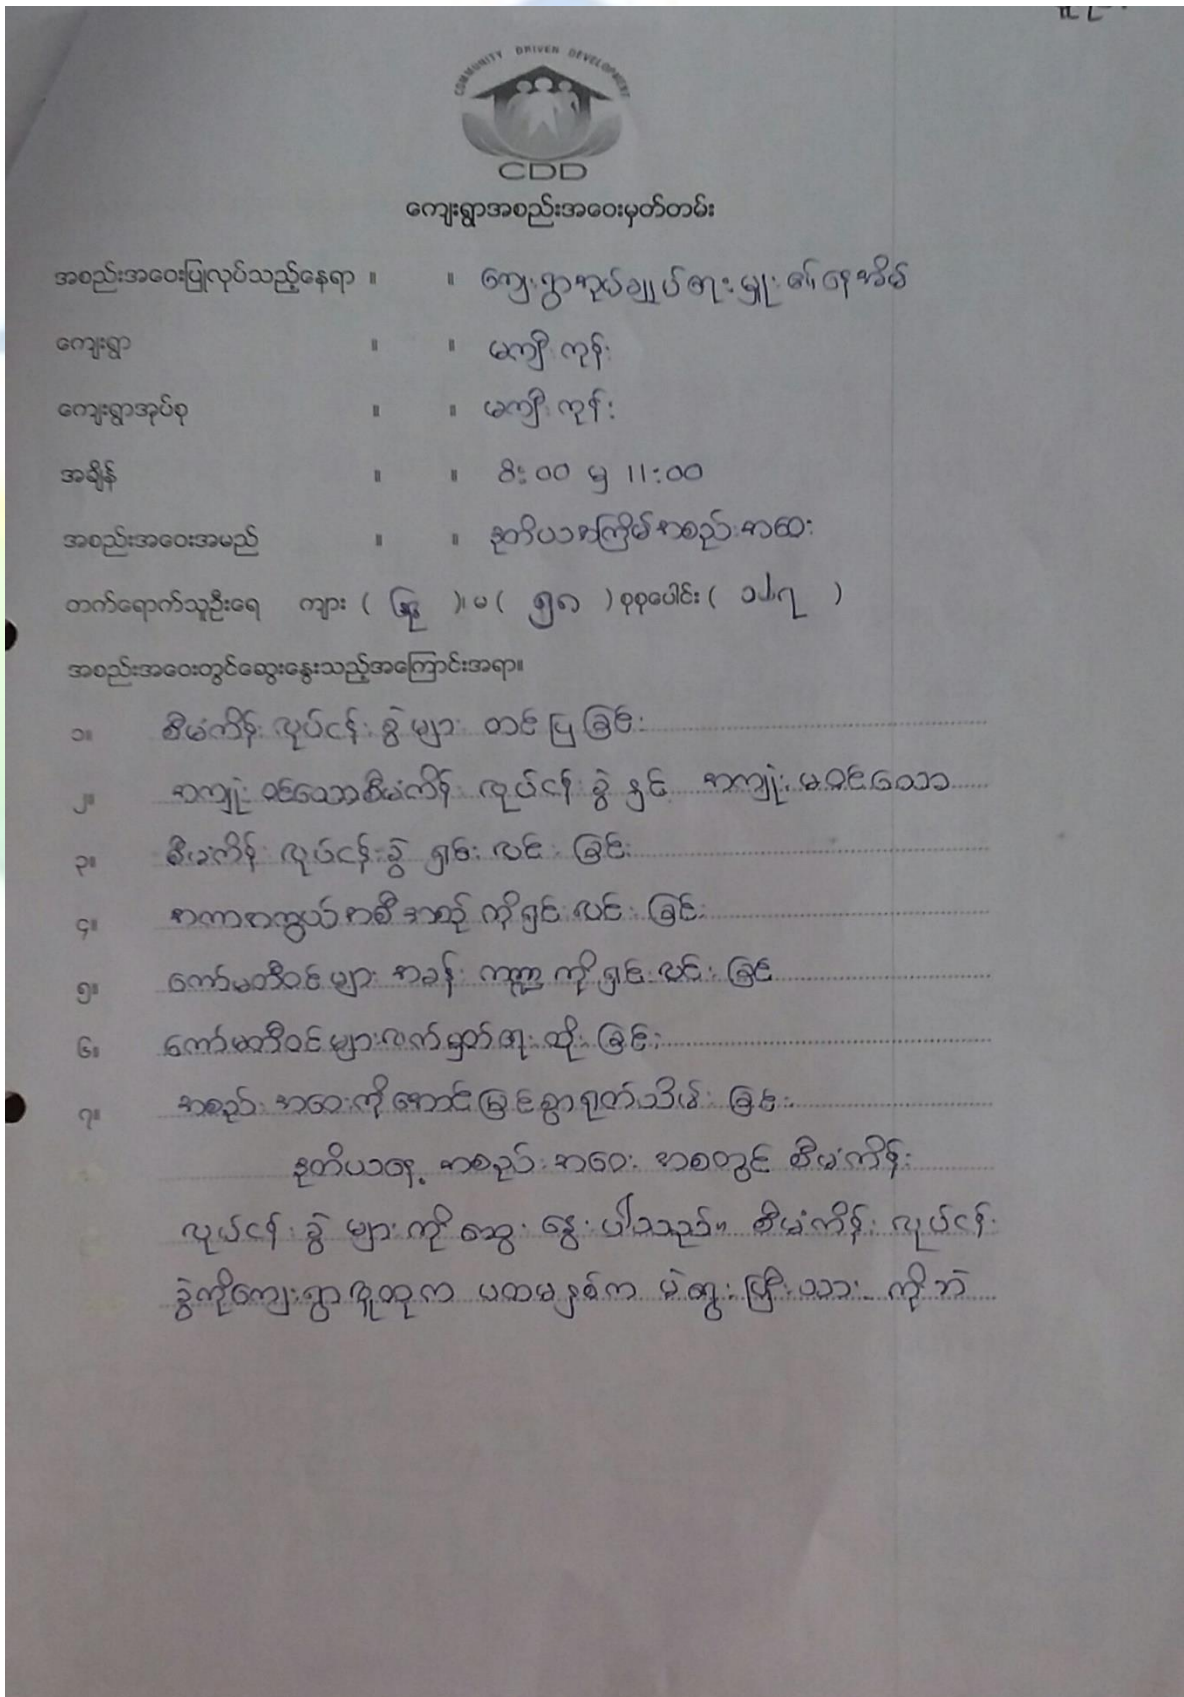 COMMUNITY DRIVEN DEVELOPMENT
CDD
ကျေးရွာအစည်းအဝေးမှတ်တမ်း
အစည်းအဝေးပြုလုပ်သည့်နေရာ ။ ။ ကျေးရွာအုပ်ချုပ်ရေးမှူး၏နေအိမ်
ကျေးရွာ ။ ။ မကျီးကုန်း
ကျေးရွာအုပ်စု ။ ။ မကျီးကုန်း
အချိန် ။ ။ 8:00 မှ 11:00
အစည်းအဝေးအမည် ။ ။ ဒုတိယအကြိမ်အစည်းအဝေး
တက်ရောက်သူဦးရေ ကျား ( )၊ မ ( ၅၈ ) စုစုပေါင်း ( )
အစည်းအဝေးတွင်ဆွေးနွေးသည့်အကြောင်းအရာ။
၁။ စီမံကိန်းလုပ်ငန်းခွဲများ တင်ပြခြင်း
၂။ အကျုံးဝင်သောစီမံကိန်းလုပ်ငန်းခွဲနှင့် အကျုံးမဝင်သော
၃။ စီမံကိန်းလုပ်ငန်းခွဲ ရှင်းလင်းခြင်း
၄။ အကာအကွယ်အစီအစဉ်ကိုရှင်းလင်းခြင်း
၅။ ကော်မတီဝင်များ အခန်းကဏ္ဍကိုရှင်းလင်းခြင်း
၆။ ကော်မတီဝင်များလက်မှတ်ရေးထိုးခြင်း
၇။ အစည်းအဝေးကိုအောင်မြင်စွာရုတ်သိမ်းခြင်း
ဒုတိယနေ့ အစည်းအဝေး အစတွင် စီမံကိန်း
လုပ်ငန်းခွဲများကိုဆွေးနွေးပါသည်။ စီမံကိန်းလုပ်ငန်း
ခွဲကိုကျေးရွာလူထုက ပထမနှစ်က မဲရွေးပြီးသားကိုဘဲ